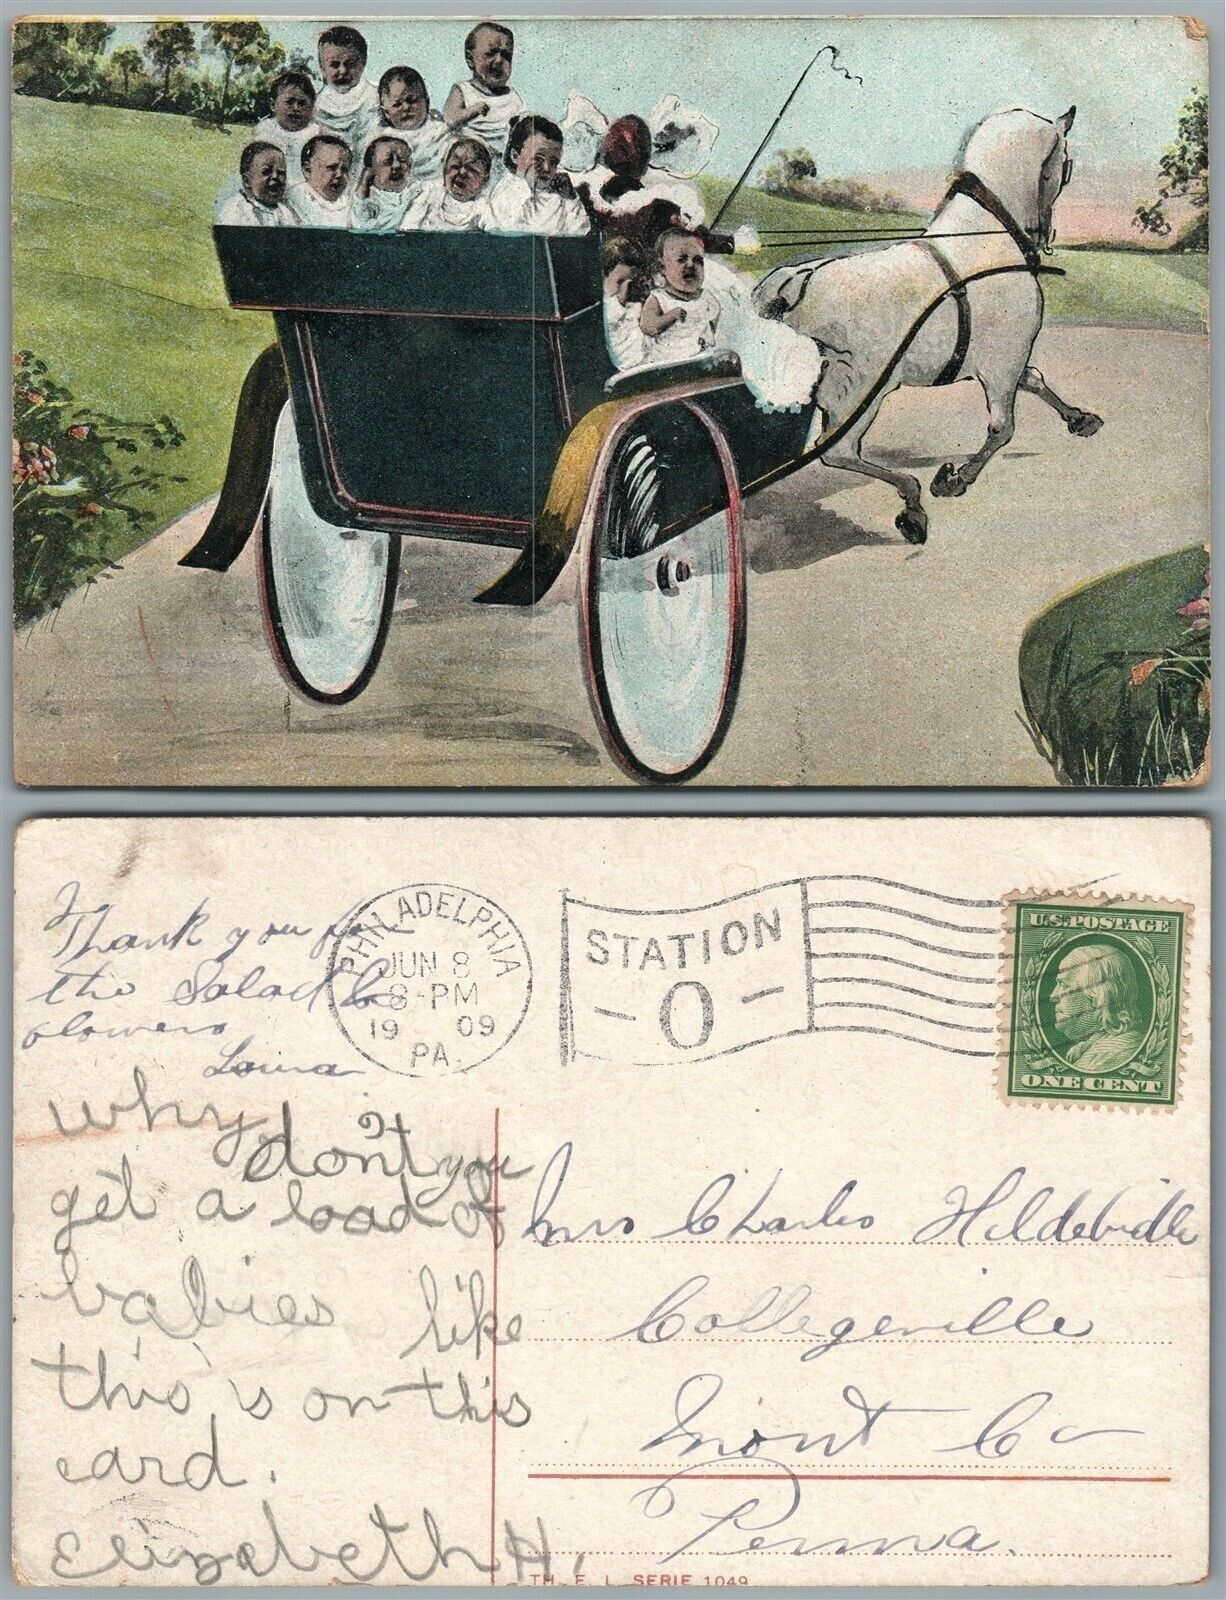 Thank you for
the Salad &
flowers
Laura
PHILADELPHIA
JUN 8
8-PM
19 09
PA.
STATION
-O-
U.S. POSTAGE
ONE CENT
why don't you
get a load of
babies like
this is on this
card.
Elizabeth H.
Mrs Charles Hildebidle
Collegeville
Mont Co
Penna.
TH. E. L. SERIE 1049